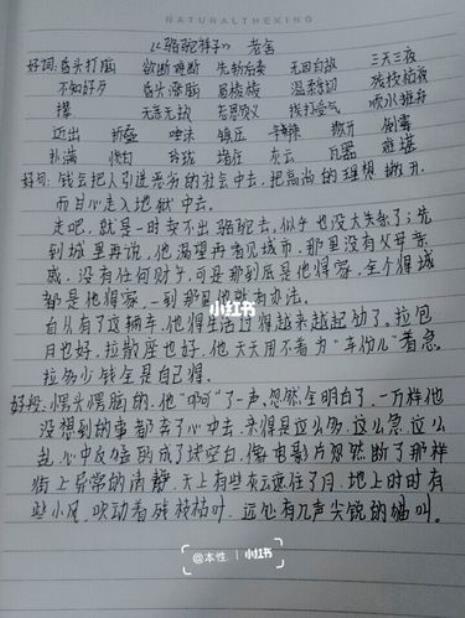 NATURALTHEXING
《骆驼祥子》 老舍
好词:昏头打脑 欲断难断 先斩后奏 无因白故 三天三夜
不知好歹 昏头涨脑 温柔亲切 残枝枯夜
无亲无故 忠思贞义 挨打受气
近出 折磨 唾沫 镇压 撒开 倒霉
扑满 玲珑 堵住 灰云 瓦器
好句:钱会把人引进恶劣的社会中去,把高尚的理想撇开,
而甘心走入地狱中去。
走吧,就是一时卖不出骆驼去,似乎也没大关系了;先
到城里再说,他渴望再看见城市,那里没有父母亲
戚,没有任何财产,可是那到底是他得家,全个得城
都是他得家,一到那里他就有办法。
小红书
自从有了这辆车,他得生活过得越来越起劲了。拉包
月也好,拉散座也好,他天天用不着为“车份儿”着急,
拉多少钱全是自己得。
好段:愣头愣脑的,他“啊”了一声,忽然全明白了,一万样他
没想到的事都奔了心中去,来得是这么多,这么急这么
乱,心中反猛的成了块空白,像电影片忽然断了那样
街上异常的清静,天上有些灰云遮住了月,地上时时有
些小风,吹动着残枝枯叶,远处有几声尖锐的猫叫。
@本性. | 小红书